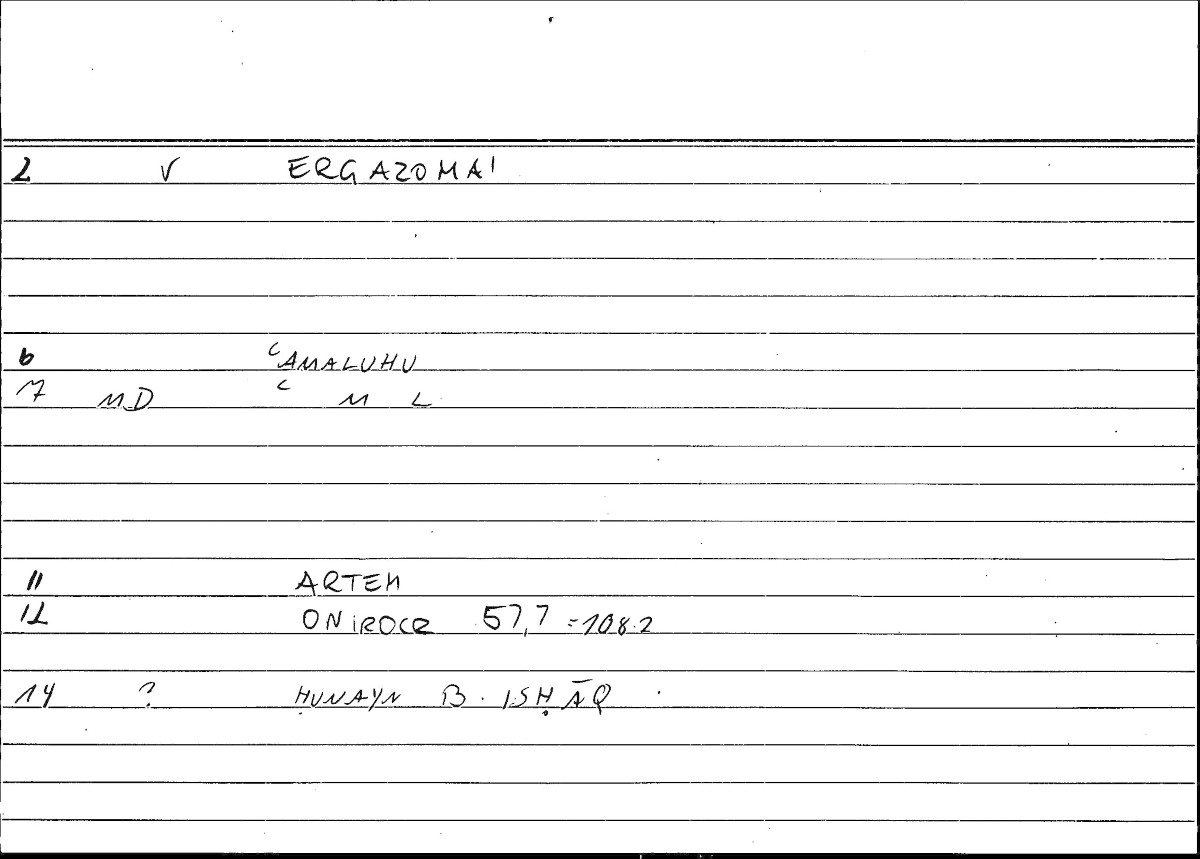 2 V ERGAZOMAI
6 ʿAMALUHU
7 MD ʿ M L
11 ARTEM
12 ONIROCR 57,7 =108.2
14 ? ḤUNAYN B. ISḤĀQ